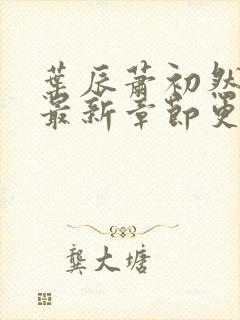 葉辰蕭初然
最新章節更
龔大塘